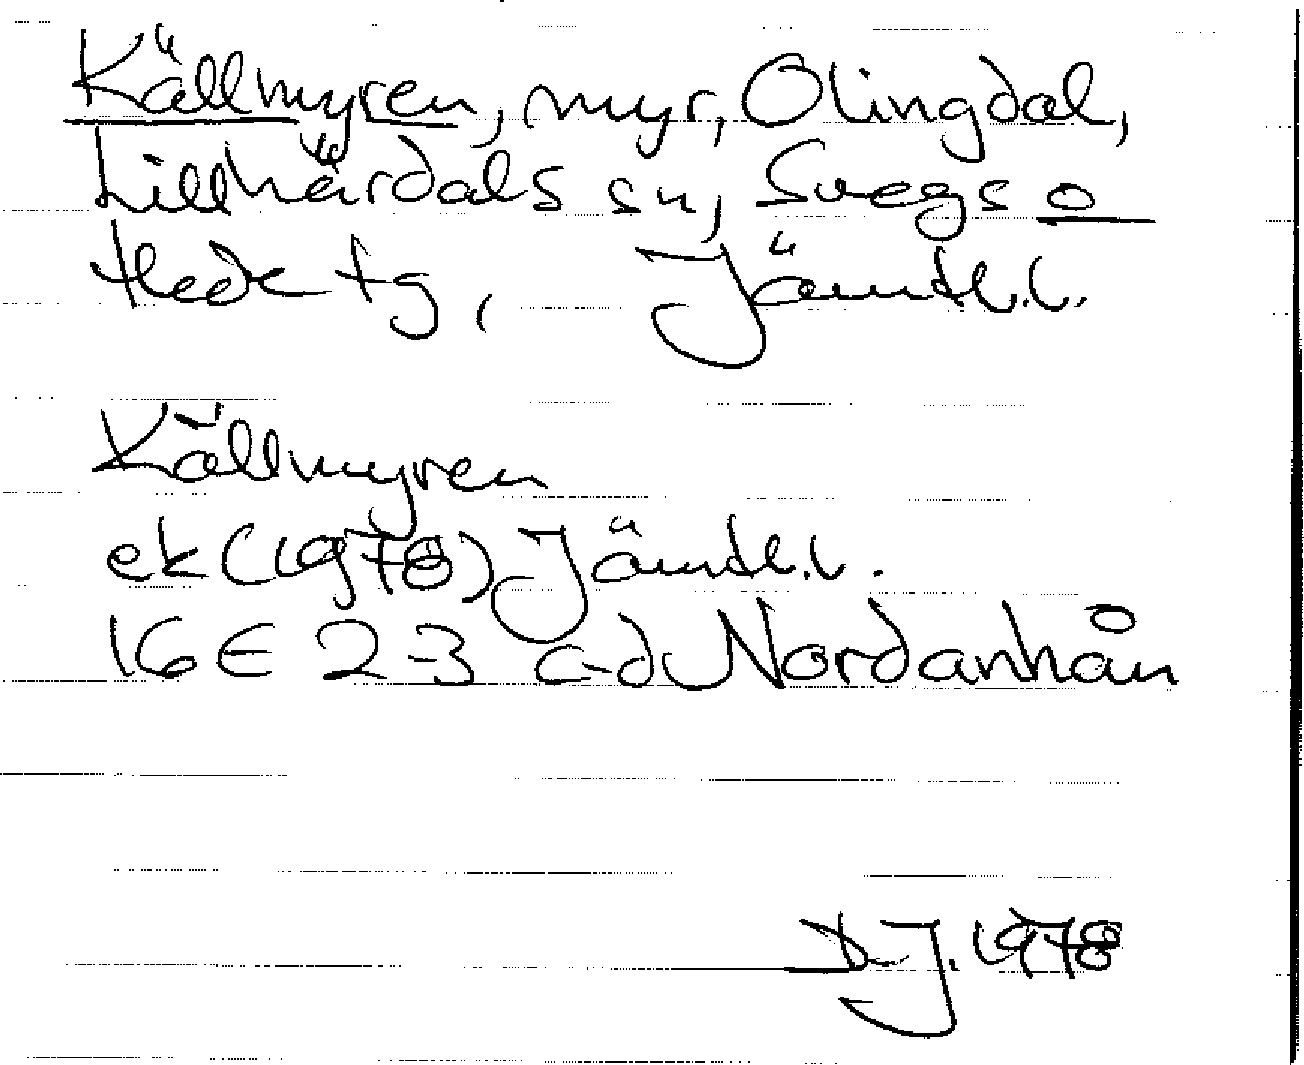 Källmyren, myr, Olingdal,
Lillhärdals sn, Svegs o
Hede tg, Jämtl.l.
Källmyren
ek (1978) Jämtl.l.
16E 2-3 c-d Nordanhån
D.J. 1978